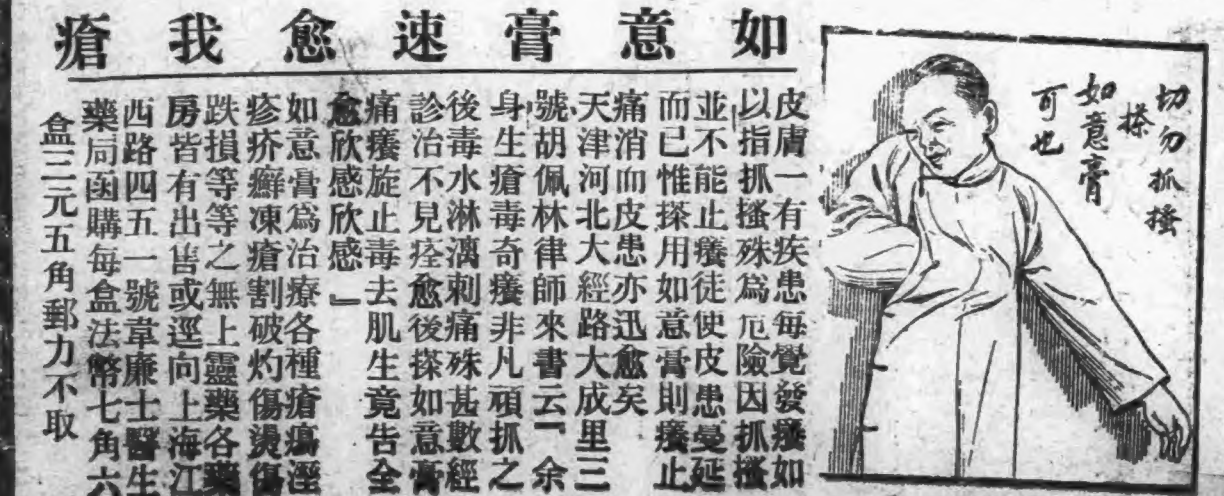 如意膏速愈我瘡
皮膚一有疾患每覺發癢如
以指抓搔殊爲厄險因抓搔
並不能止癢徒使皮患蔓延
而已惟搽用如意膏則癢止
痛消而皮患亦迅愈矣
天津河北大經路大成里三
號胡佩林律師來書云「余
身生瘡毒奇癢非凡頑抓之
後毒水淋漓刺痛殊甚數經
診治不見痊愈後搽如意膏
痛癢旋止毒去肌生竟告全
愈欣感欣感』
如意膏爲治療各種瘡瘍溼
疹疥癬凍瘡割破灼傷燙傷
跌損等等之無上靈藥各藥
房皆有出售或逕向上海江
西路四五一號韋廉士醫生
藥局函購每盒法幣七角六
盒三元五角郵力不取
切勿抓搔
搽
如意膏
可也